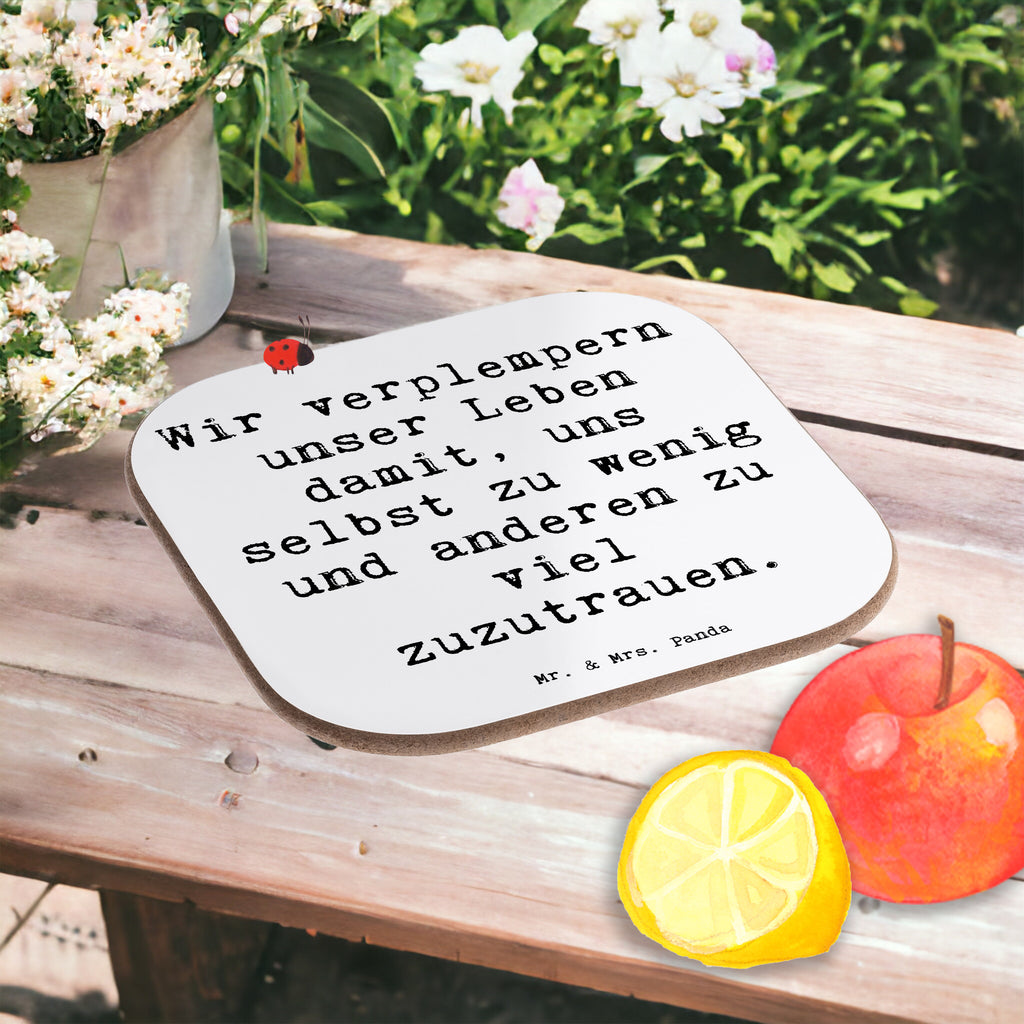 Wir verplempern
unser Leben
damit, uns
selbst zu wenig
und anderen zu
viel
zuzutrauen.
Mr. & Mrs. Panda